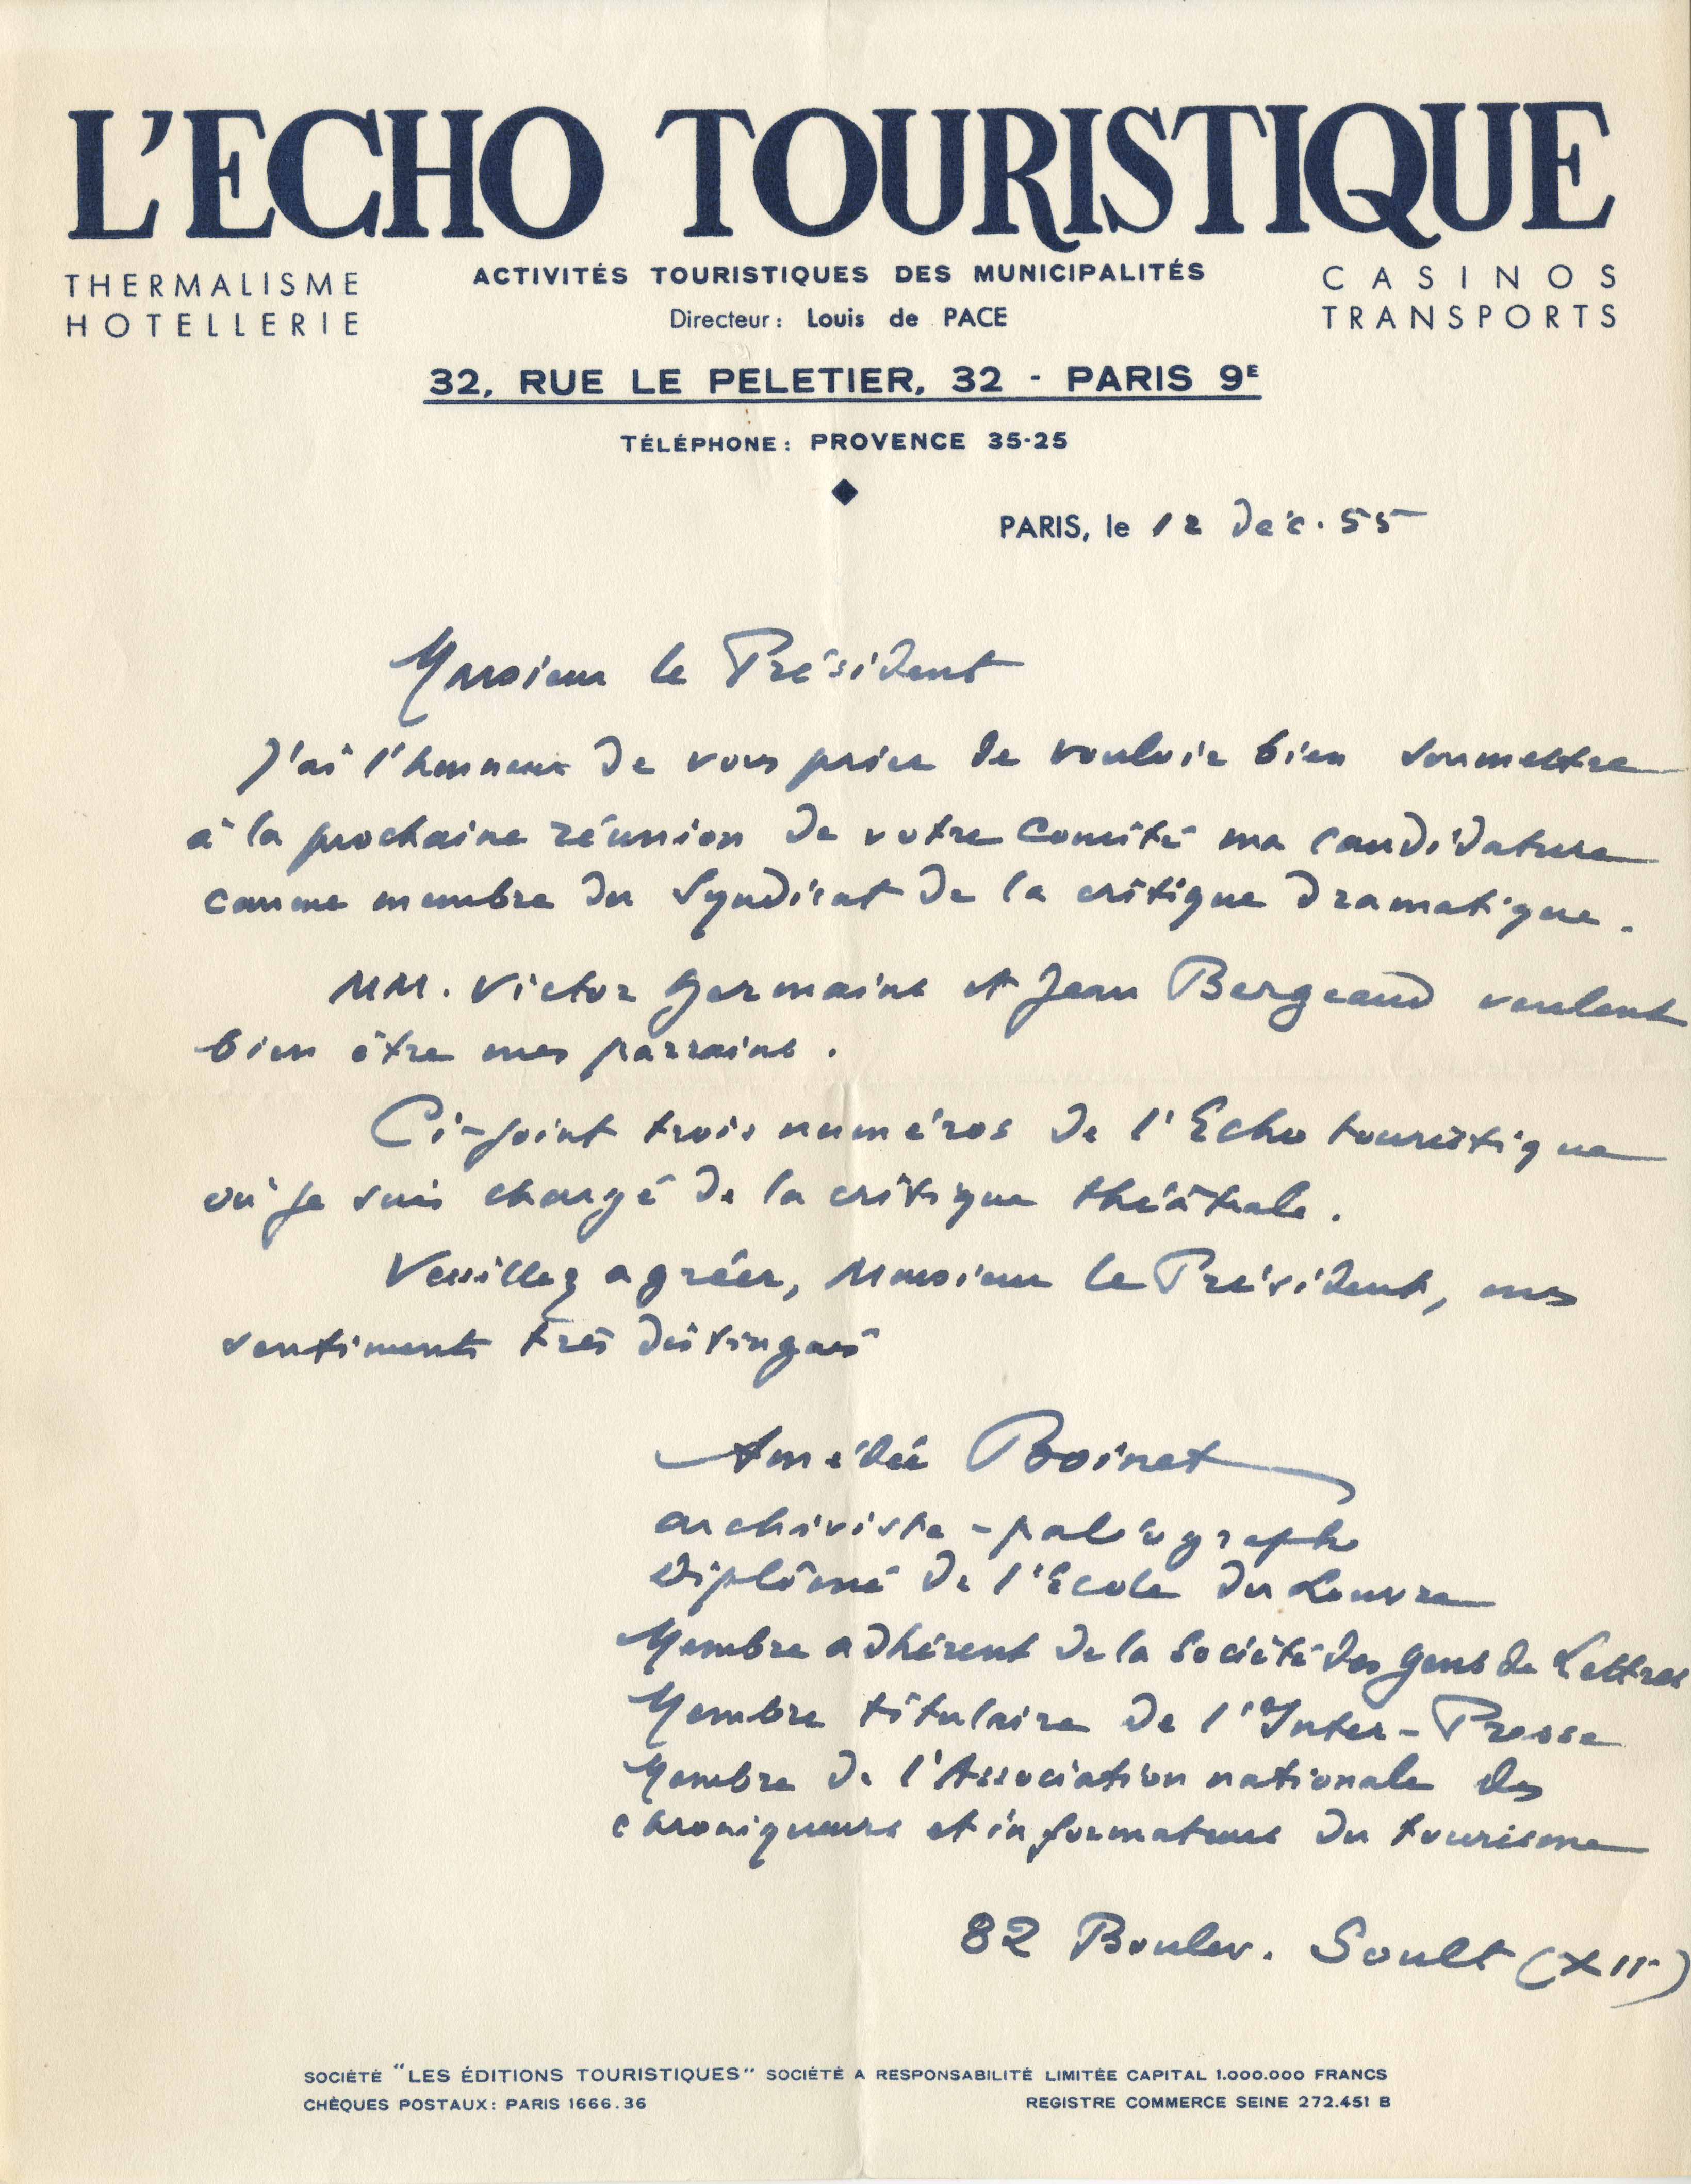 L'ECHO TOURISTIQUE
THERMALISME
HOTELLERIE
ACTIVITÉS TOURISTIQUES DES MUNICIPALITÉS
Directeur : Louis de PACE
CASINOS
TRANSPORTS
32, RUE LE PELETIER, 32 - PARIS 9E
TÉLÉPHONE : PROVENCE 35-25
PARIS, le 12 Déc. 55
Monsieur le Président
J'ai l'honneur de vous prier de vouloir bien soumettre
à la prochaine réunion de votre Comité ma candidature
comme membre du Syndicat de la critique dramatique.
MM. Victor Germains et Jean Bergeaud veulent
bien être mes parrains.
Ci-joint trois numéros de l'Echo touristique
où je suis chargé de la critique théâtrale.
Veuillez agréer, Monsieur le Président, mes
sentiments très distingués
Amédée Boinet
archiviste-paléographe
Diplômé de l'Ecole du Louvre
Membre adhérent de la Société des Gens de Lettres
Membre titulaire de l'Inter-Presse
Membre de l'Association nationale des
chroniqueurs et informateurs du tourisme
82 Boulev. Soult (XIIe)
SOCIÉTÉ "LES ÉDITIONS TOURISTIQUES" SOCIÉTÉ A RESPONSABILITÉ LIMITÉE CAPITAL 1.000.000 FRANCS
CHÈQUES POSTAUX : PARIS 1666.36
REGISTRE COMMERCE SEINE 272.451 B